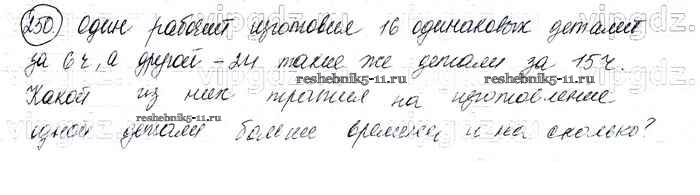 250. Один рабочий изготовил 16 одинаковых деталей
за 6 ч, а другой – 24 такие же детали за 15 ч.
reshebnik5-11.ru reshebnik5-11.ru
Какой из них тратил на изготовление
reshebnik5-11.ru
одной детали больше времени, и на сколько?